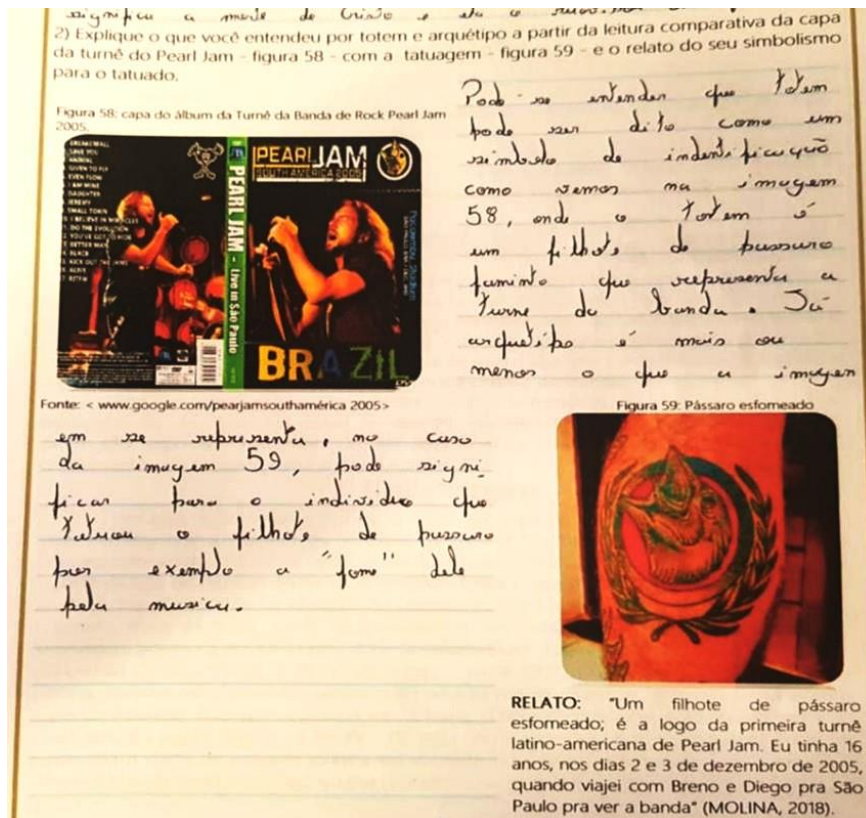 significa a mente de Cristo e
2) Explique o que você entendeu por totem e arquétipo a partir da leitura comparativa da capa
da turnê do Pearl Jam - figura 58 - com a tatuagem - figura 59 - e o relato do seu simbolismo
para o tatuado.
Figura 58: capa do álbum da Turnê da Banda de Rock Pearl Jam
2005.
BREAKERFALL
SAVE YOU
ANIMAL
GIVEN TO FLY
EVEN FLOW
I AM MINE
DAUGHTER
JEREMY
SMALL TOWN
I BELIEVE IN MIRACLES
DO THE EVOLUTION
BETTER MAN
BLACK
ALIVE
PEARL JAM - Live in São Paulo
PEARL JAM
SOUTH AMERICA 2005
Pacaembu Stadium
BRAZIL
Fonte: < www.google.com/pearjamsouthamérica 2005>
Pode-se entender que totem
pode ser dito como um
simbolo de indentificação
como vemos na imagem
58, onde o totem é
um filhote de passaro
faminto que representa a
turne da banda. Já
arquetipo é mais ou
menos o que a imagen
em se representa, no caso
da imagem 59, pode signi
ficar para o individuo que
tatuou o filhote de passaro
por exemplo a "fome" dele
pela musica.
Figura 59: Pássaro esfomeado
RELATO: "Um filhote de pássaro
esfomeado; é a logo da primeira turnê
latino-americana de Pearl Jam. Eu tinha 16
anos, nos dias 2 e 3 de dezembro de 2005,
quando viajei com Breno e Diego pra São
Paulo pra ver a banda" (MOLINA, 2018).